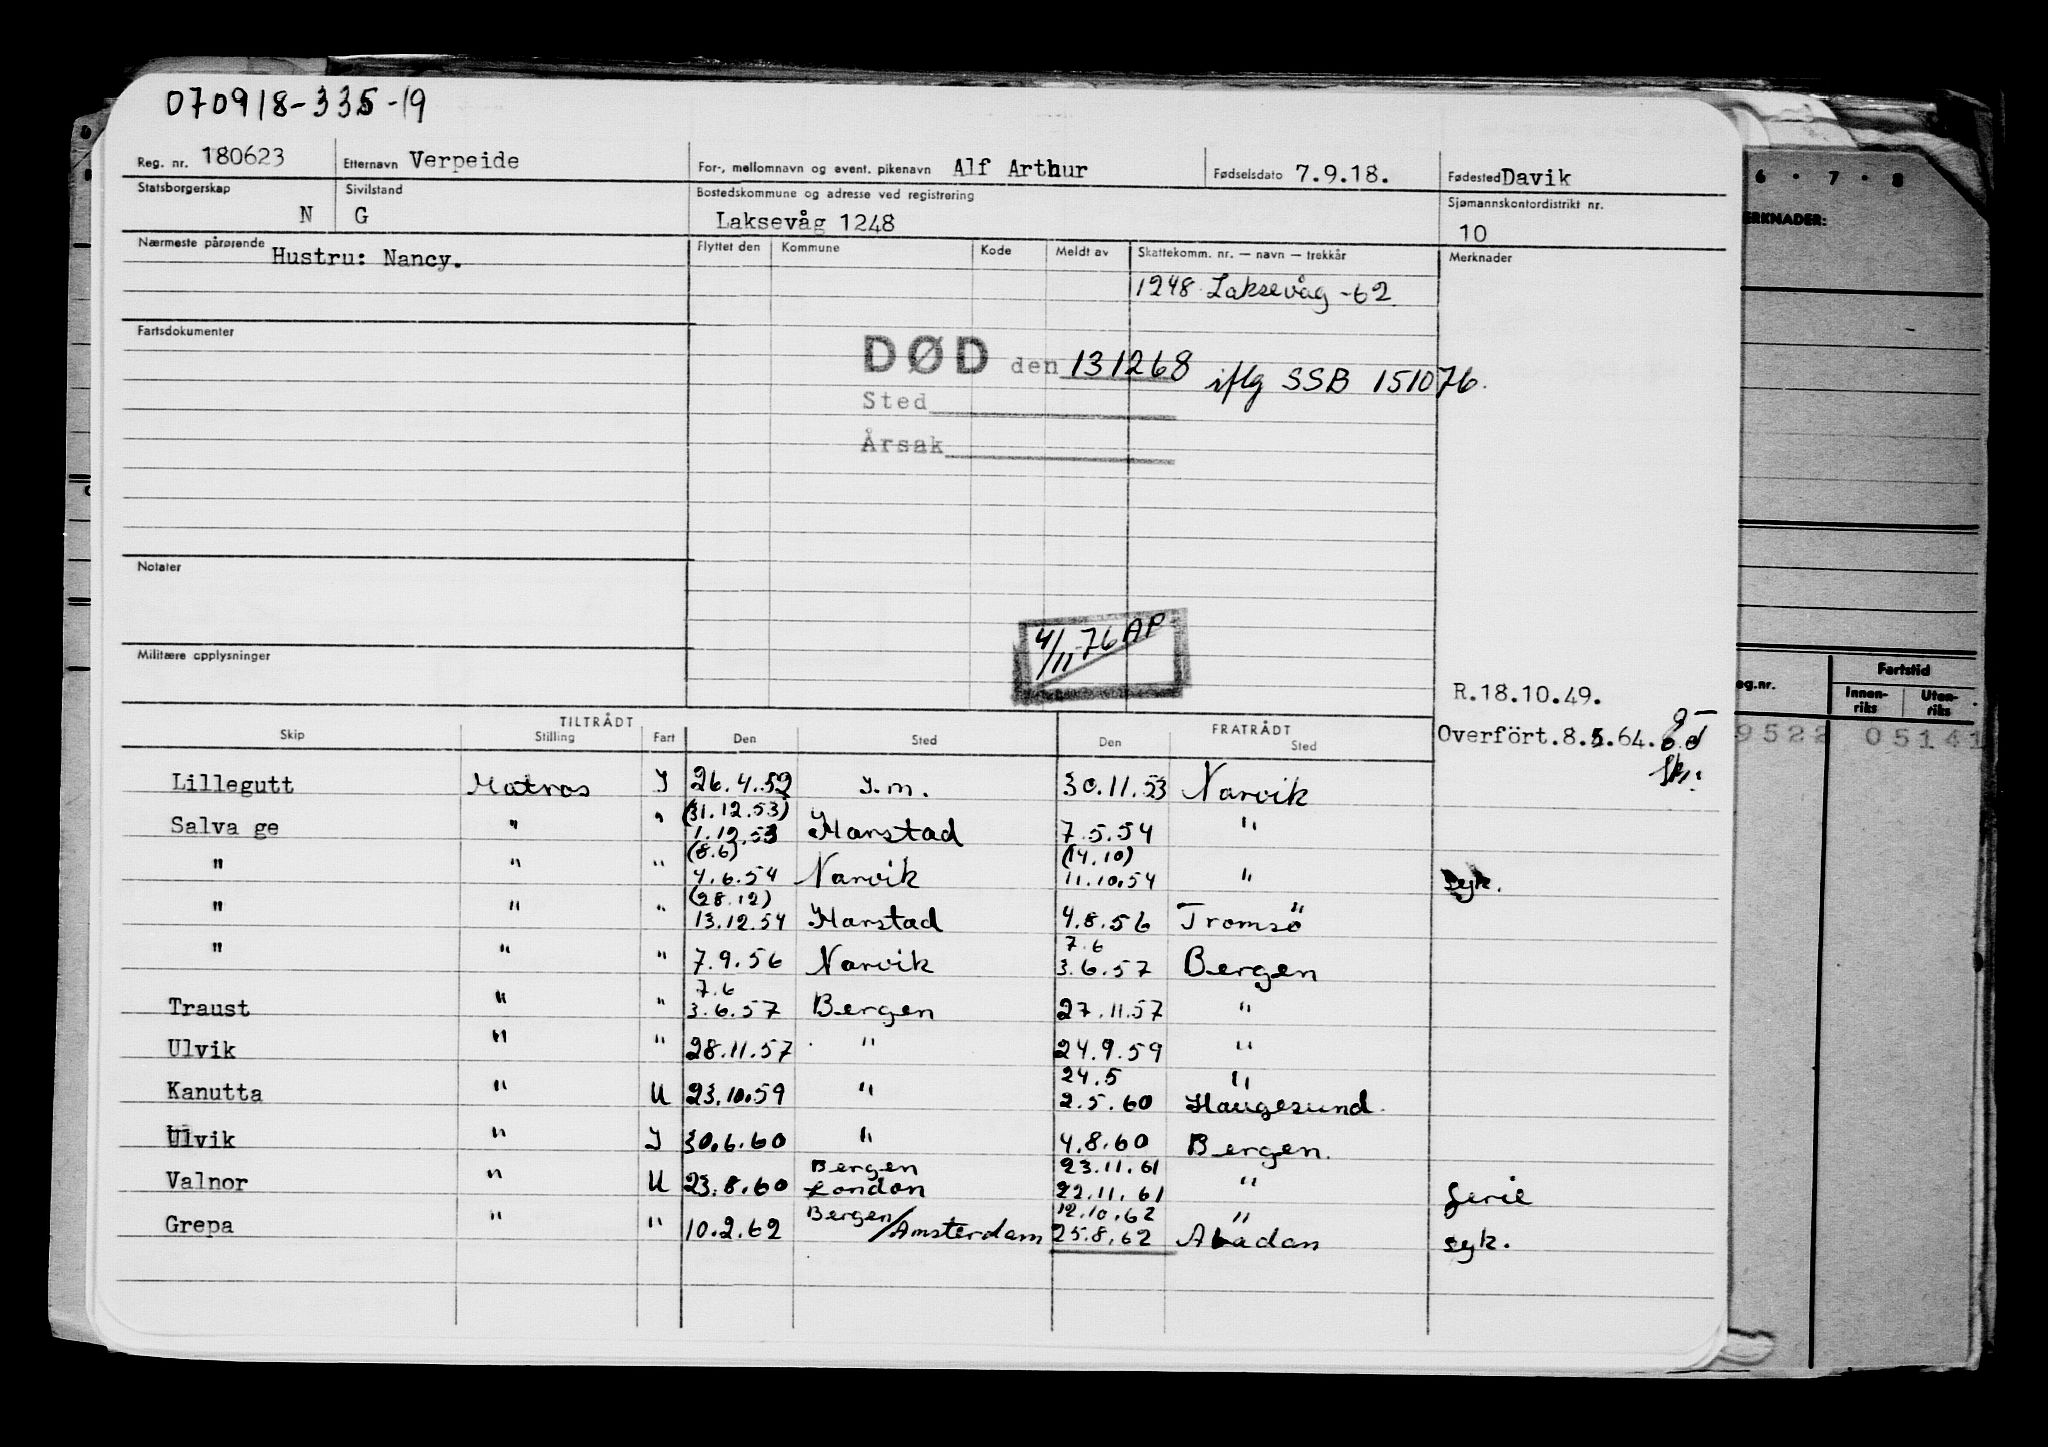 070918-335-19
Reg. nr. 180623 Etternavn Verpeide For-, mellomnavn og event. pikenavn Alf Arthur Fødselsdato 7.9.18. Fødested Davik
Statsborgerskap N Sivilstand G Bostedskommune og adresse ved registrering Laksevåg 1248 Sjømannskontordistrikt nr. 10
Nærmeste pårørende Hustru: Nancy. Flyttet den Kommune Kode Meldt av Skattekomm. nr. — navn — trekkår Merknader
1248 Laksevåg -62
Fartsdokumenter
DØD den 131268 iflg SSB 151076.
Sted
Årsak
Notater
4/11 76 AP
Militære opplysninger
R.18.10.49.
Overført.8.5.64.
TILTRÅDT FRATRÅDT
Skip Stilling Fart Den Sted Den Sted
Lillegutt Matros I 26.4.52 I.m. 30.11.53 Narvik
(31.12.53)
Salva ge " " 1.12.53 Harstad 7.5.54 "
(8.6) (14.10)
" " " 4.6.54 Narvik 11.10.54 " syk.
(28.12)
" " " 13.12.54 Harstad 4.8.56 Tromsö
7.6
" " " 7.9.56 Narvik 3.6.57 Bergen
7.6
Traust " " 3.6.57 Bergen 27.11.57 "
Ulvik " " 28.11.57 " 24.9.59 "
24.5 "
Kanutta " U 23.10.59 " 2.5.60 Haugesund.
Ulvik " I 30.6.60 " 4.8.60 Bergen.
Bergen 23.11.61
Valnor " U 23.8.60 London 22.11.61 " ferie
Bergen 12.10.62 "
Grepa " " 10.2.62 /Amsterdam 25.8.62 Abadan syk.
6 . 7 . 8
ERKNADER:
eg.nr. Fartstid
Innen-riks Uten-riks
9522 05141